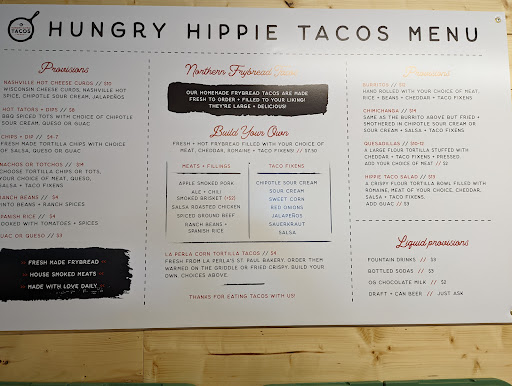 TACOS
HUNGRY HIPPIE TACOS MENU
Provisions
NASHVILLE HOT CHEESE CURDS //
WISCONSIN CHEESE CURDS, NASHVILLE HOT
SPICE, CHIPOTLE SOUR CREAM, JALAPEÑOS
HOT TATORS + DIPS // $8
BBQ SPICED TOTS WITH CHOICE OF CHIPOTLE
SOUR CREAM, QUESO OR GUAC
CHIPS + DIP // $4-7
FRESH MADE TORTILLA CHIPS WITH CHOICE
OF SALSA, QUESO OR GUAC
NACHOS OR TOTCHOS // $14
CHOOSE TORTILLA CHIPS OR TOTS,
YOUR CHOICE OF MEAT, QUESO,
SALSA + TACO FIXENS
RANCH BEANS // $4
PINTO BEANS + RANCH SPICES
SPANISH RICE // $4
COOKED WITH TOMATOES + SPICES
GUAC OR QUESO // $3
FRESH MADE FRYBREAD
HOUSE SMOKED MEATS
MADE WITH LOVE DAILY
Northern Frybread Tacos
OUR HOMEMADE FRYBREAD TACOS ARE MADE
FRESH TO ORDER + FILLED TO YOUR LIKING!
THEY'RE LARGE + DELICIOUS!
Build Your Own
FRESH + HOT FRYBREAD FILLED WITH YOUR CHOICE OF
MEAT, CHEDDAR, ROMAINE + TACO FIXENS! // $7.50
MEATS + FILLINGS
APPLE SMOKED PORK
ALE + CHILI
SMOKED BRISKET (+$2)
SALSA ROASTED CHICKEN
SPICED GROUND BEEF
RANCH BEANS +
SPANISH RICE
TACO FIXENS
CHIPOTLE SOUR CREAM
SOUR CREAM
SWEET CORN
RED ONIONS
JALAPEÑOS
SAUERKRAUT
SALSA
LA PERLA CORN TORTILLA TACOS // $4
FRESH FROM LA PERLA'S ST. PAUL BAKERY. ORDER THEM
WARMED ON THE GRIDDLE OR FRIED CRISPY. BUILD YOUR
OWN. CHOICES ABOVE.
THANKS FOR EATING TACOS WITH US!
Provisions
BURRITOS //
HAND ROLLED WITH YOUR CHOICE OF MEAT,
RICE + BEANS + CHEDDAR + TACO FIXENS
CHIMICHANGA // $14
SAME AS THE BURRITO ABOVE BUT FRIED +
SMOTHERED IN CHIPOTLE SOUR CREAM OR
SOUR CREAM + SALSA + TACO FIXENS
QUESADILLAS // $10-12
A LARGE FLOUR TORTILLA STUFFED WITH
CHEDDAR + TACO FIXENS + PRESSED.
ADD YOUR CHOICE OF MEAT // $2
HIPPIE TACO SALAD // $13
A CRISPY FLOUR TORTILLA BOWL FILLED WITH
ROMAINE, MEAT OF YOUR CHOICE, CHEDDAR,
SALSA + TACO FIXENS.
ADD GUAC // $3
Liquid provisions
FOUNTAIN DRINKS // $3
BOTTLED SODAS // $3
OG CHOCOLATE MILK // $2
DRAFT + CAN BEER // JUST ASK